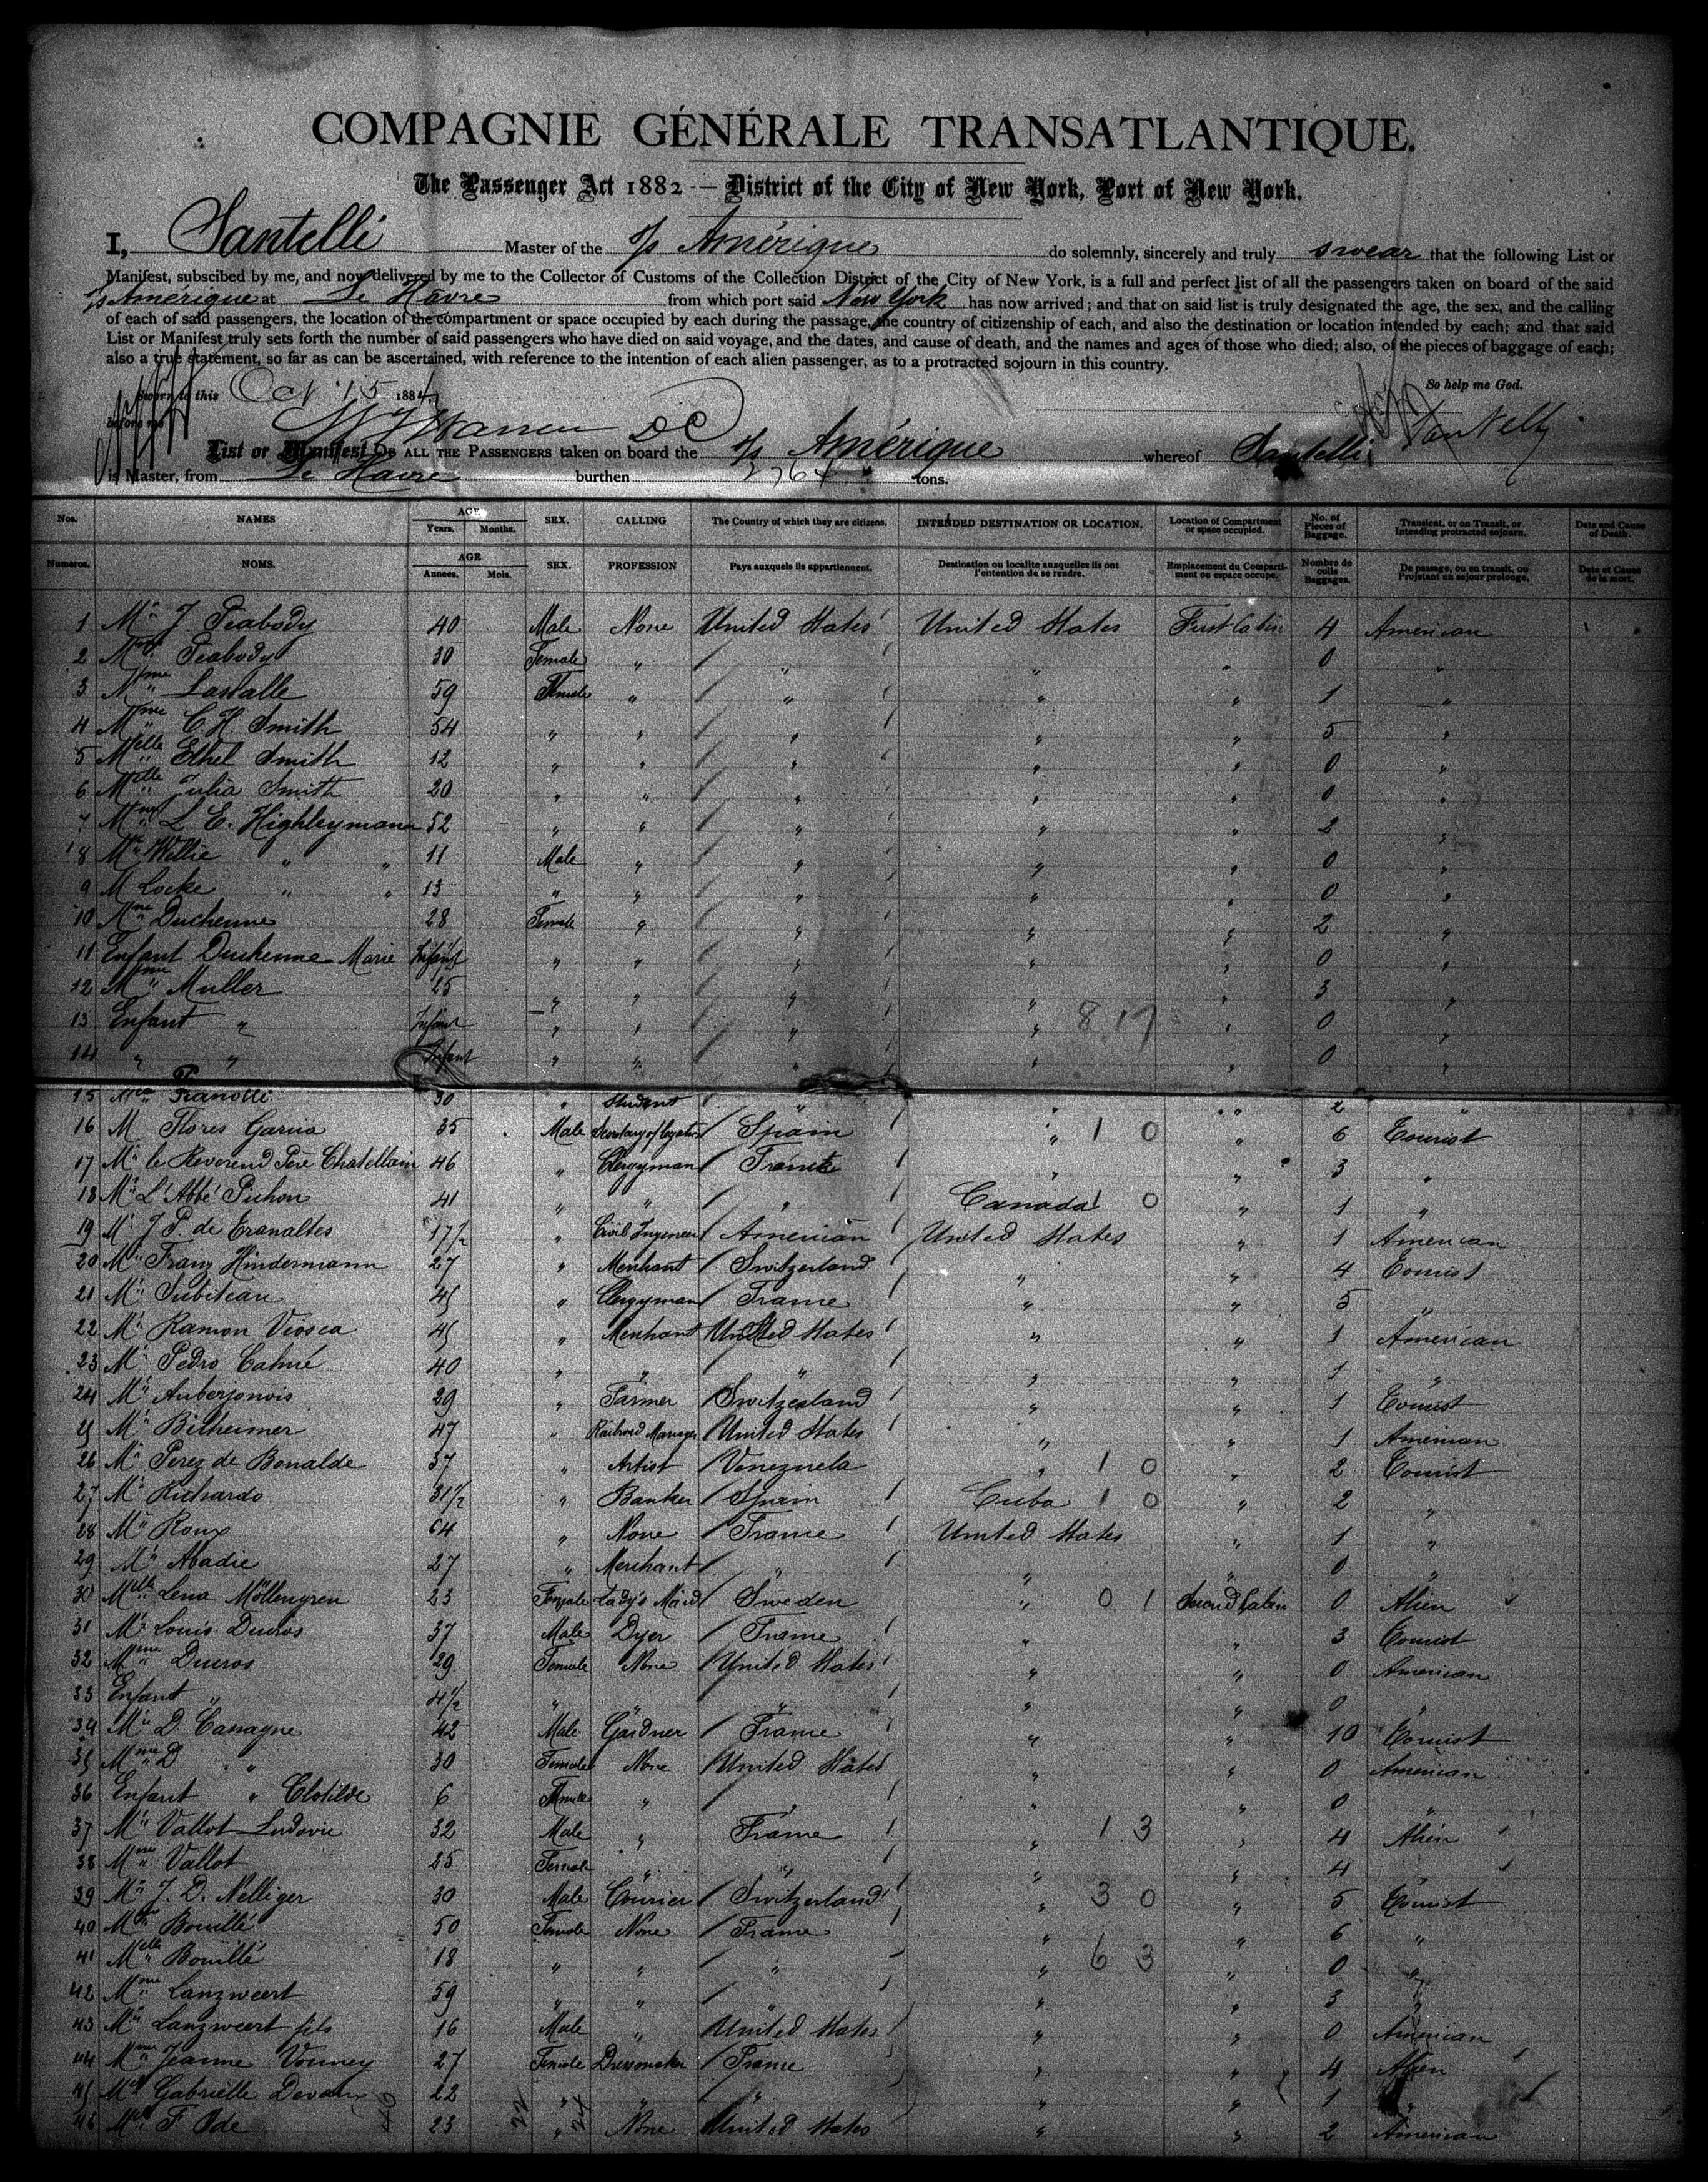 COMPAGNIE GÉNÉRALE TRANSATLANTIQUE.
The Passenger Act 1882 — District of the City of New York, Port of New York.
I, Santelli Master of the s/s Amérique do solemnly, sincerely and truly swear that the following List or
Manifest, subscibed by me, and now delivered by me to the Collector of Customs of the Collection District of the City of New York, is a full and perfect list of all the passengers taken on board of the said
s/s Amérique at Le Havre from which port said New York has now arrived; and that on said list is truly designated the age, the sex, and the calling
of each of said passengers, the location of the compartment or space occupied by each during the passage, the country of citizenship of each, and also the destination or location intended by each; and that said
List or Manifest truly sets forth the number of said passengers who have died on said voyage, and the dates, and cause of death, and the names and ages of those who died; also, of the pieces of baggage of each;
also a true statement, so far as can be ascertained, with reference to the intention of each alien passenger, as to a protracted sojourn in this country.
So help me God.
Sworn to this Oct 15 1884
before me Santelli
List or Manifest OF ALL THE PASSENGERS taken on board the s/s Amérique whereof Santelli
is Master, from Le Havre burthen tons.
Nos. NAMES AGE Years. Months. SEX. CALLING The Country of which they are citizens. INTENDED DESTINATION OR LOCATION. Location of Compartment or space occupied. No. of Pieces of Baggage. Transient, or on Transit, or Intending protracted sojourn. Date and Cause of Death.
Numeros. NOMS. AGE Annees. Mois. SEX. PROFESSION Pays auxquels ils appartiennent. Destination ou localite auxquelles ils ont l'entention de se rendre. Emplacement du Compartiment ou espace occupe. Nombre de colis Baggages. De passage, ou en transit, ou Projetant un sejour prolonge. Date et Cause de la mort.
1 Mr J Peabody 40 Male None United States United States First Cabin 4 American
2 Mme Peabody 30 Female " " " " 0 "
3 Mme Lassalle 59 Female " " " " 1 "
4 Mme C. H. Smith 54 " " " " " 5 "
5 Melle Ethel Smith 12 " " " " " 0 "
6 Melle Julia Smith 20 " " " " " 0 "
7 Mme L. E. Highleymann 52 " " " " " 2 "
8 Mr Willie " " 11 Male " " " " 0 "
9 M Locke " " 13 " " " " " 0 "
10 Mme Duchenne 28 Female " " " " 2 "
11 Enfant Duchenne Marie Infant " " " " " 0 "
12 Mme Muller 25 " " " " " 3 "
13 Enfant " Infant " " " " " 0 "
14 " " Infant " " " " " 0 "
15 30 " Student " " " 2 "
16 M Flores Garcia 35 Male Secretary of Legation Spain " 1 0 " 6 Tourist
17 Mr le Reverend Père Chatellain 46 " Clergyman France " " 3 "
18 Mr L'Abbé Pichon 41 " " " Canada 1 0 " 1 "
19 Mr J. P. de Eranaltes 17 1/2 " Civil Ingeneer American United States " 1 American
20 Mr Franz Hindermann 27 " Merchant Switzerland " " 4 Tourist
21 Mr Subileau 45 " Clergyman France " " 5 "
22 Mr Ramon Viosca 45 " Merchant United States " " 1 American
23 Mr Pedro Calmé 40 " " " " " 1 "
24 Mr Auberjonois 29 " Farmer Switzerland " " 1 Tourist
25 Mr Bilheimer 47 " Railroad Manager United States " " 1 American
26 Mr Perez de Bonalde 37 " Artist Venezuela " 1 0 " 2 Tourist
27 Mr Richardo 31 1/2 " Banker Spain Cuba 1 0 " 2 "
28 Mr Roux 64 " None France United States " 1 "
29 Mr Abadie 27 " Merchant " " " 0 "
30 Melle Lena Möllengren 23 Female Lady's Maid Sweden " 0 1 Second Cabin 0 Alien
31 Mr Louis Ducros 37 Male Dyer France " " 3 Tourist
32 Mme Ducros 29 Female None United States " " 0 American
33 Enfant " 4 1/2 " " " " " 0 "
34 Mr D. Cassagne 42 Male Gardner France " " 10 Tourist
35 Mme D " 30 Female None United States " " 0 American
36 Enfant " Clotilde 6 Female " " " " 0 "
37 Mr Vallot Ludovic 32 Male " France " 1 3 " 4 Alien
38 Mme Vallot 25 Female " " " " 4 "
39 Mr J. D. Nelliger 30 Male Courier Switzerland " 3 0 " 5 Tourist
40 Mme Bouillé 50 Female None France " " 6 "
41 Melle Bouillé 18 " " " " 6 3 " 0 "
42 Mme Lanzweert 59 " " " " " 3 "
43 Mr Lanzweert fils 16 Male " United States " " 0 American
44 Mme Jeanne Vonney 27 Female Dressmaker France " " 4 Alien
45 Melle Gabrielle 22 " " " " " 1 "
46 Melle F. Ode 23 " None United States " " 2 American